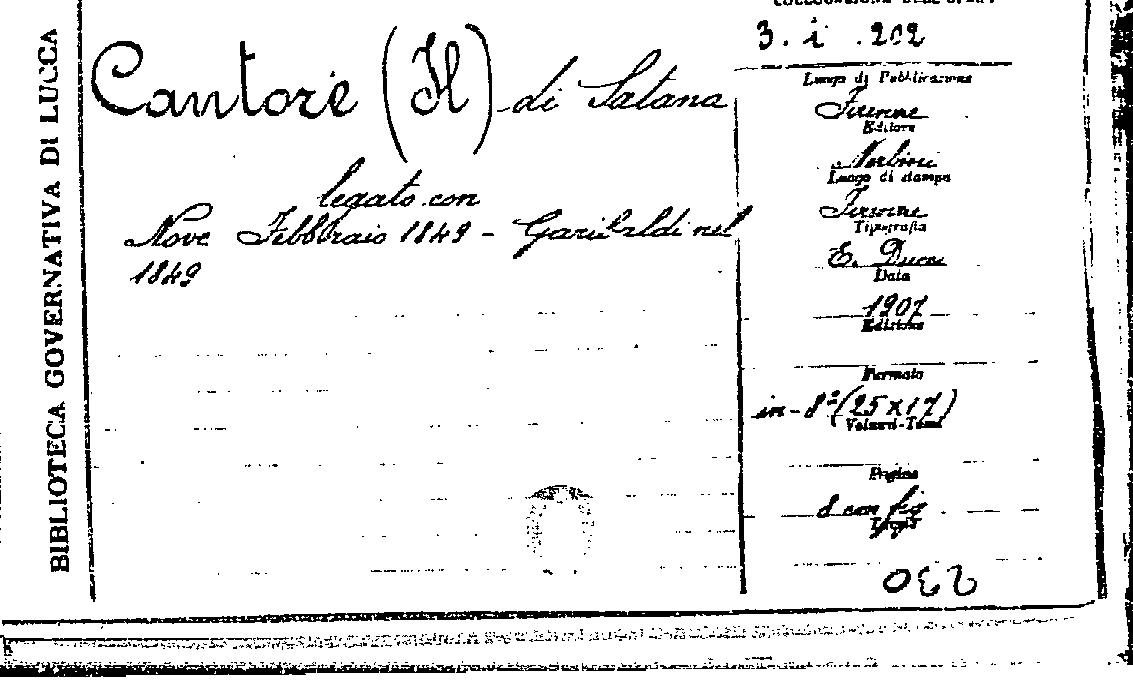 BIBLIOTECA GOVERNATIVA DI LUCCA
Cantore (Il) di Satana
legato con
Nove Febbraio 1849 - Garibaldi nel
1849
COLLOCAZIONE DELL'OPERA
3. i .202
Luogo di Pubblicazione
Firenze
Editore
Nerbini
Luogo di stampa
Firenze
Tipografia
E. Ducci
Data
1907
Edizione
Formato
in-8º (25x17)
Volumi-Tomi
Pagine
8 con fig